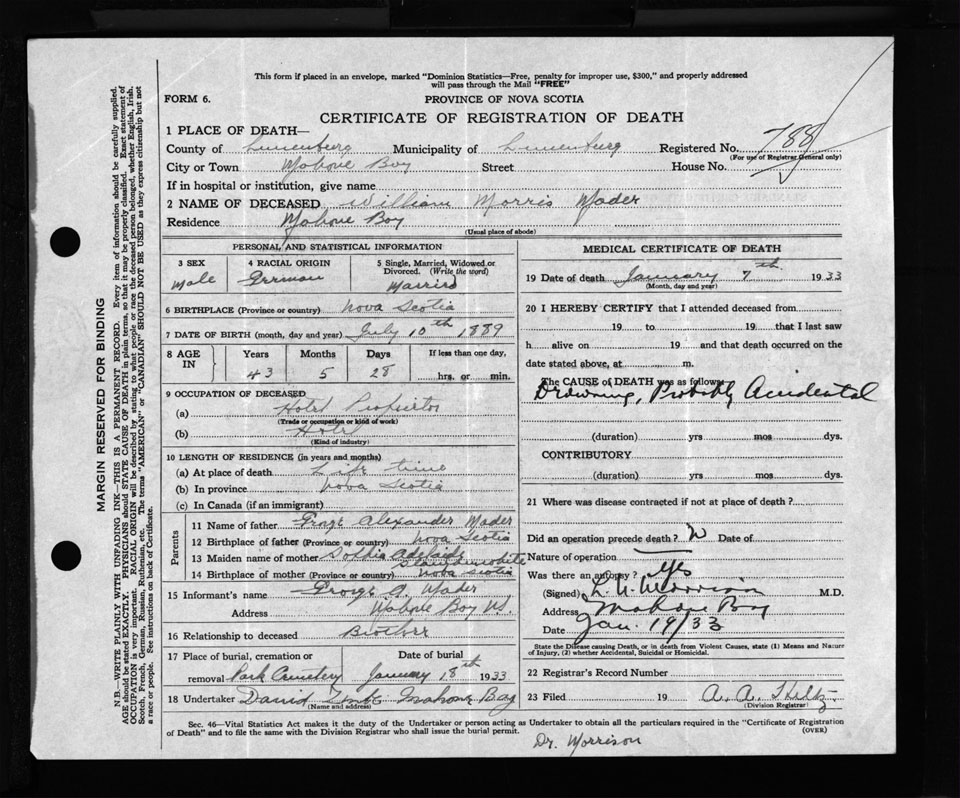 This form if placed in an envelope, marked "Dominion Statistics—Free, penalty for improper use, $300," and properly addressed
will pass through the Mail "FREE"
FORM 6.
PROVINCE OF NOVA SCOTIA
CERTIFICATE OF REGISTRATION OF DEATH
1 PLACE OF DEATH—
County of Lunenburg Municipality of Lunenburg Registered No. 788
(For use of Registrar General only)
City or Town Mahone Bay Street House No.
If in hospital or institution, give name
2 NAME OF DECEASED William Morris Mader
Residence Mahone Bay
(Usual place of abode)
PERSONAL AND STATISTICAL INFORMATION
3 SEX 4 RACIAL ORIGIN 5 Single, Married, Widowed or Divorced. (Write the word)
Male German Married
6 BIRTHPLACE (Province or country) Nova Scotia
7 DATE OF BIRTH (month, day and year) July 10th 1889
8 AGE IN Years Months Days If less than one day,
43 5 28 hrs. or min.
9 OCCUPATION OF DECEASED
(a) Hotel Proprietor
(Trade or occupation or kind of work)
(b) Hotel
(Kind of industry)
10 LENGTH OF RESIDENCE (in years and months)
(a) At place of death Life time
(b) In province Nova Scotia
(c) In Canada (if an immigrant)
Parents
11 Name of father Alexander Mader
12 Birthplace of father (Province or country) Nova Scotia
13 Maiden name of mother Sophia Adelaide
14 Birthplace of mother (Province or country) Nova Scotia
15 Informant's name George A. Mader
Address Mahone Bay NS.
16 Relationship to deceased Brother
17 Place of burial, cremation or removal Park Cemetery
Date of burial January 18th 1933
18 Undertaker David Mahone Bay
(Name and address)
MEDICAL CERTIFICATE OF DEATH
19 Date of death January 7th 1933
(Month, day and year)
20 I HEREBY CERTIFY that I attended deceased from
19 to 19 that I last saw
h alive on 19 and that death occurred on the
date stated above, at m.
The CAUSE of DEATH was as follows:
Drowning, Probably Accidental
(duration) yrs mos dys.
CONTRIBUTORY
(duration) yrs mos dys.
21 Where was disease contracted if not at place of death?
Did an operation precede death? Date of
Nature of operation
Was there an autopsy? Yes
(Signed) Morrison M.D.
Address Mahone Bay
Date Jan. 19/33
State the Disease causing Death, or in death from Violent Causes, state (1) Means and Nature
of Injury, (2) whether Accidental, Suicidal or Homicidal.
22 Registrar's Record Number
23 Filed 19 A. A. Hiltz
(Division Registrar)
Sec. 46—Vital Statistics Act makes it the duty of the Undertaker or person acting as Undertaker to obtain all the particulars required in the "Certificate of Registration
of Death" and to file the same with the Division Registrar who shall issue the burial permit.
(OVER)
Dr. Morrison
MARGIN RESERVED FOR BINDING
N.B.—WRITE PLAINLY WITH UNFADING INK—THIS IS A PERMANENT RECORD. Every item of information should be carefully supplied.
AGE should be stated EXACTLY. PHYSICIANS should STATE CAUSE OF DEATH in plain terms, so that it may be properly classified. Exact statement of
OCCUPATION is very important. RACIAL ORIGIN will be described by stating to what people or race the deceased person belonged, whether English, Irish,
Scotch, French, German, Russian, Ruthenian, etc. The terms "AMERICAN" or "CANADIAN" SHOULD NOT BE USED as they express citizenship but not
a race or people. See instructions on back of Certificate.